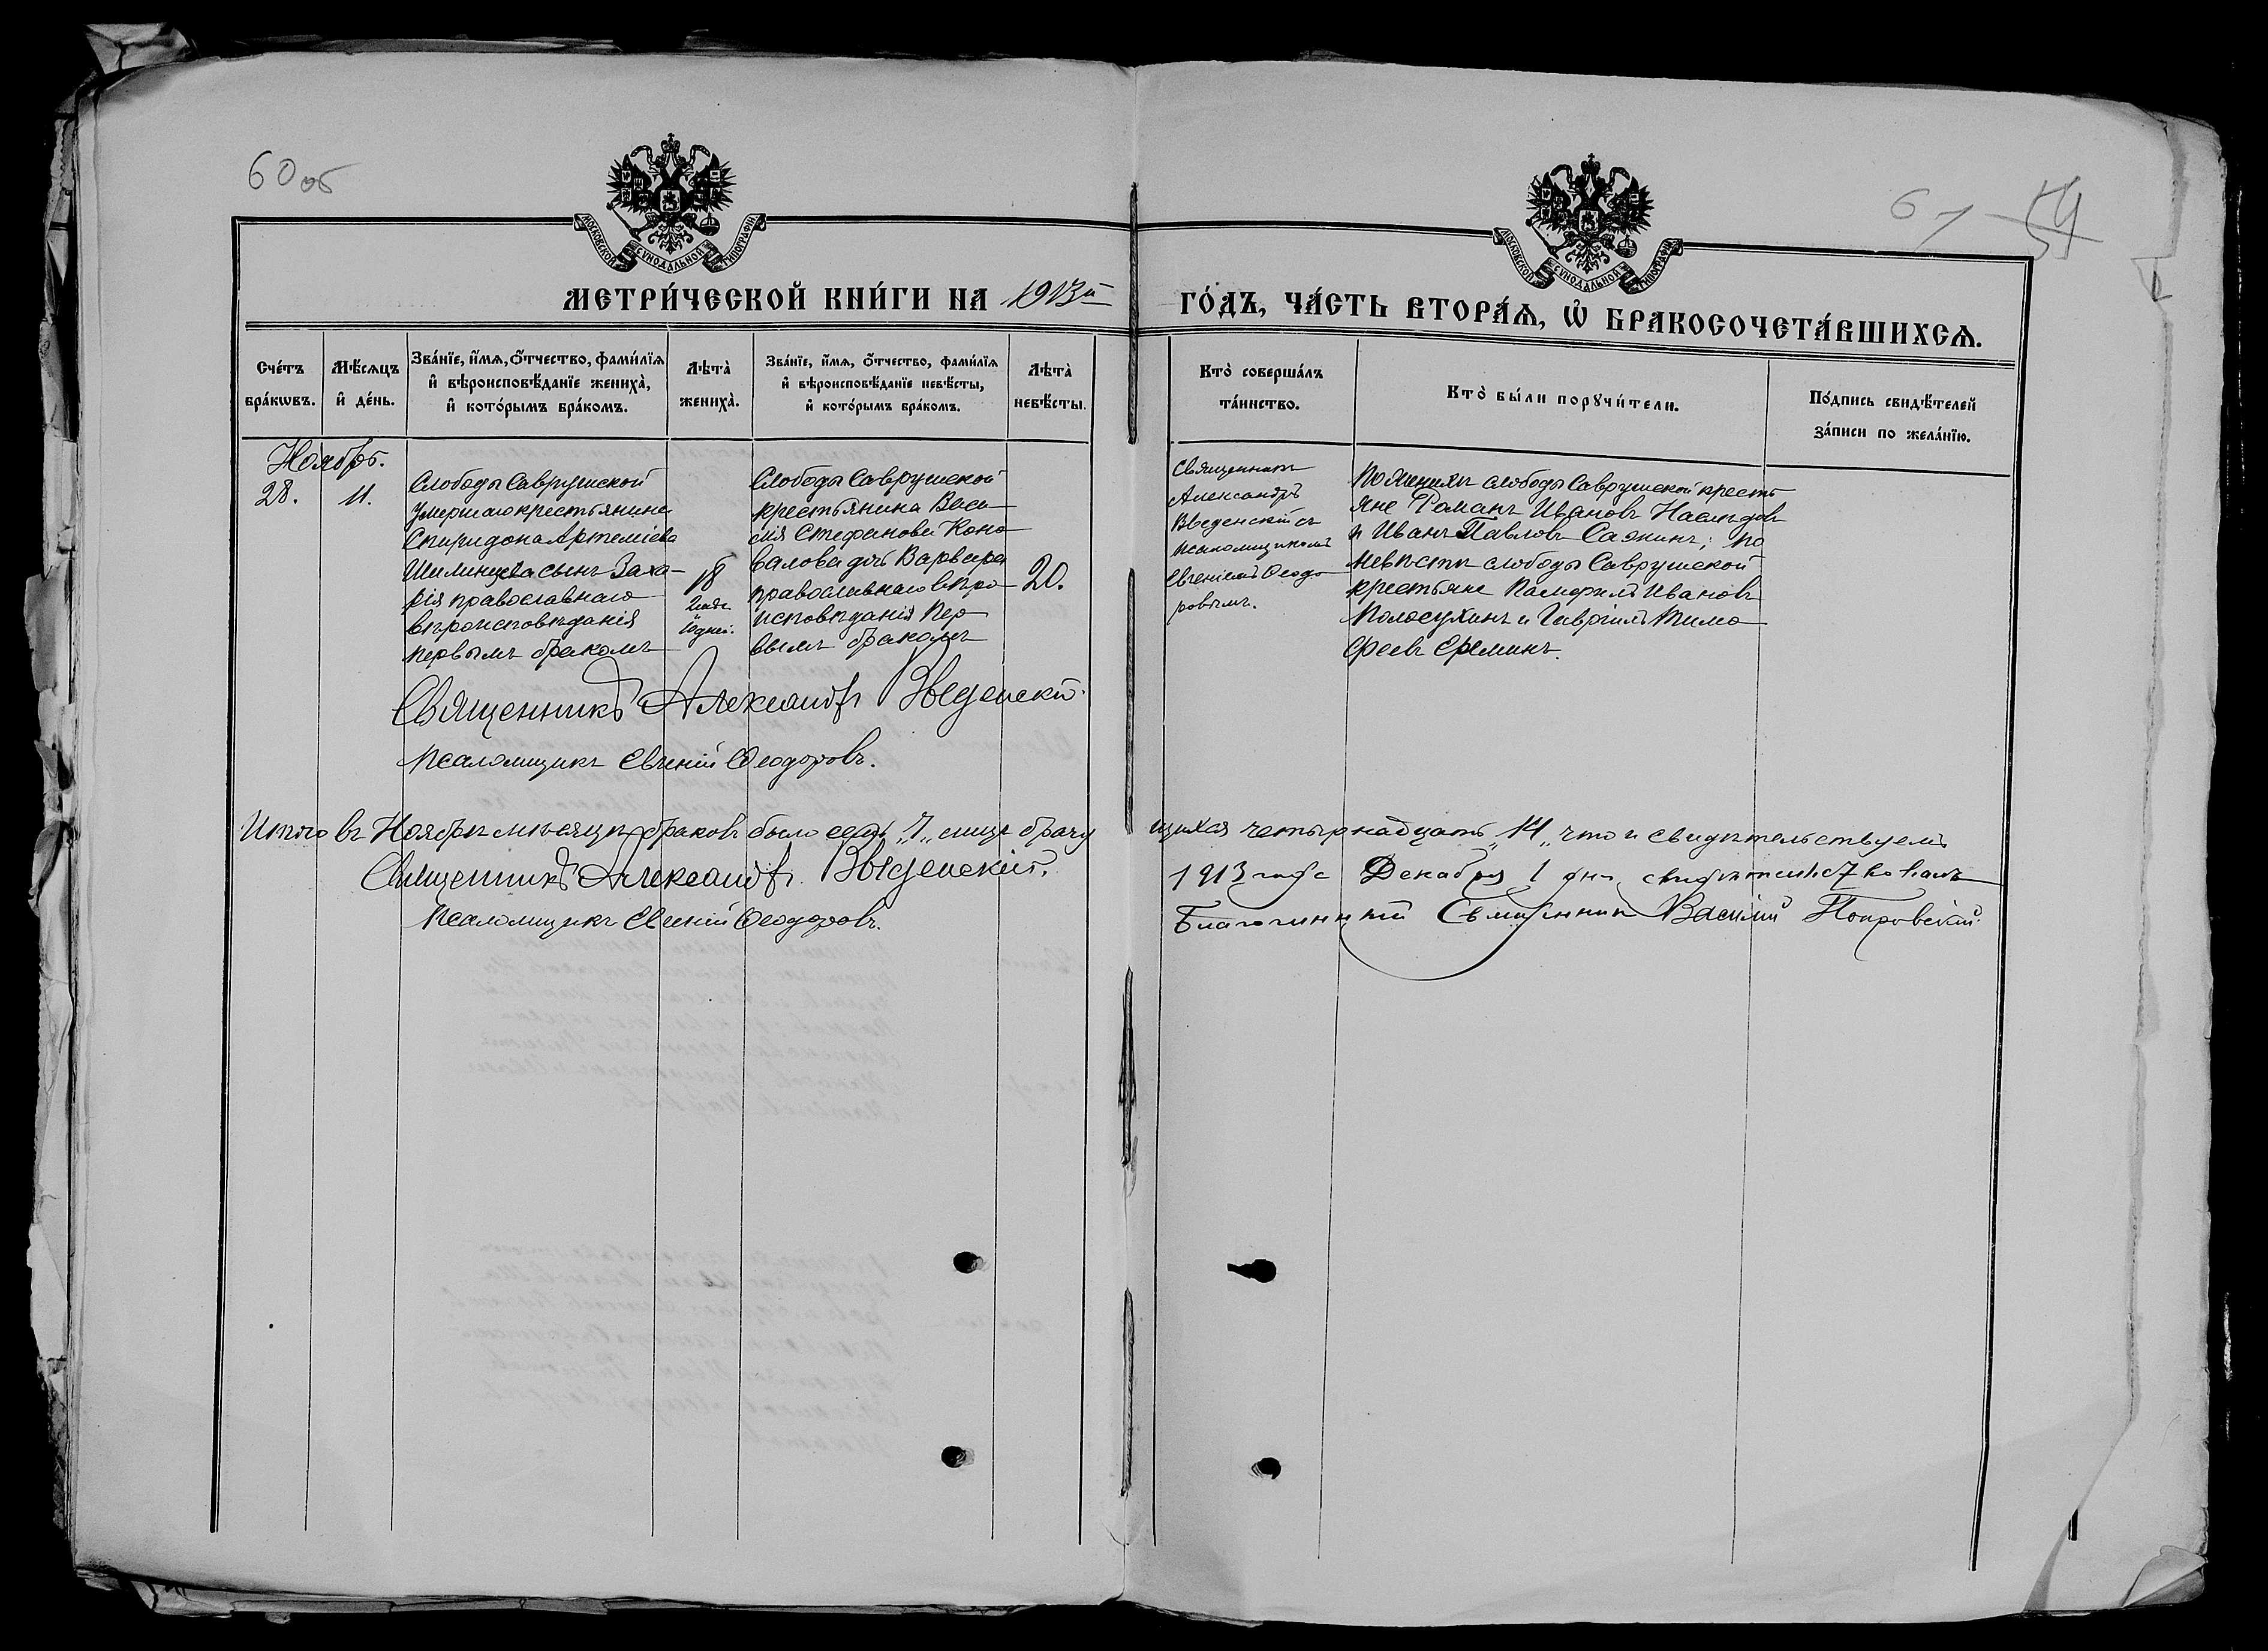 60 об
61 54
МОСКОВСКОЙ СѴНОДАЛЬНОЙ ТИПОГРАФІИ
МОСКОВСКОЙ СѴНОДАЛЬНОЙ ТИПОГРАФІИ
МЕТРИ́ЧЕСКОЙ КНИ́ГИ НА 1913й ГО́ДЪ, ЧА́СТЬ ВТОРА́Ѧ, Ѽ БРАКОСОЧЕТА́ВШИХСѦ.
Сче́тъ бра́кѡвъ.
Мѣ́сяцъ и҆ де́нь.
Зва́нїе, и҆́мѧ, ѻ҆́тчество, фами́лїѧ и҆ вѣроисповѣ́данїе жениха̀, и҆ кото́рымъ бра́комъ.
Лѣта̀ жениха̀.
Зва́нїе, и҆́мѧ, ѻ҆́тчество, фами́лїѧ и҆ вѣроисповѣ́данїе невѣ́сты, и҆ кото́рымъ бра́комъ.
Лѣта̀ невѣ́сты.
Кто̀ соверша́лъ та́инство.
Кто̀ бы́ли порꙋчи́тели.
По́дпись свидѣ́телей за́писи по жела́нїю.
Ноябрь.
28. 11.
Слободы Саврушской
умершаго крестьянина
Спиридона Артеміева
сынъ Заха-
рія православнаго
вѣроисповѣданія
первымъ бракомъ
18
10 дней.
Слободы Саврушской
крестьянина Васи-
лія Стефанова Коно-
валова дочь Варвара
православнаго вѣро-
исповѣданія пер-
вымъ бракомъ
20.
Священникъ
Александръ
Введенскій съ
псаломщикомъ
Евгеніемъ Ѳеодо-
ровымъ.
По женихѣ слободы Саврушской кресть-
яне Романъ Ивановъ Наслѣдовъ
и Иванъ Павловъ Саянинъ; по
невѣстѣ слободы Саврушской
крестьяне Памфилъ Ивановъ
Полосухинъ и Гавріилъ Тимо-
феевъ Ереминъ.
Священникъ Александръ Введенскій.
Псаломщикъ Евгеній Ѳеодоровъ.
Итого въ Ноябрѣ мѣсяцѣ браковъ было семь „7„ лицъ брачу-
щихся четырнадцать „14„ что и свидѣтельствуемъ
Священникъ Александръ Введенскій.
Псаломщикъ Евгеній Ѳеодоровъ.
1913 года Декабря 1 дня свидѣтельствовалъ
Благочинный Священникъ Василій Покровскій.